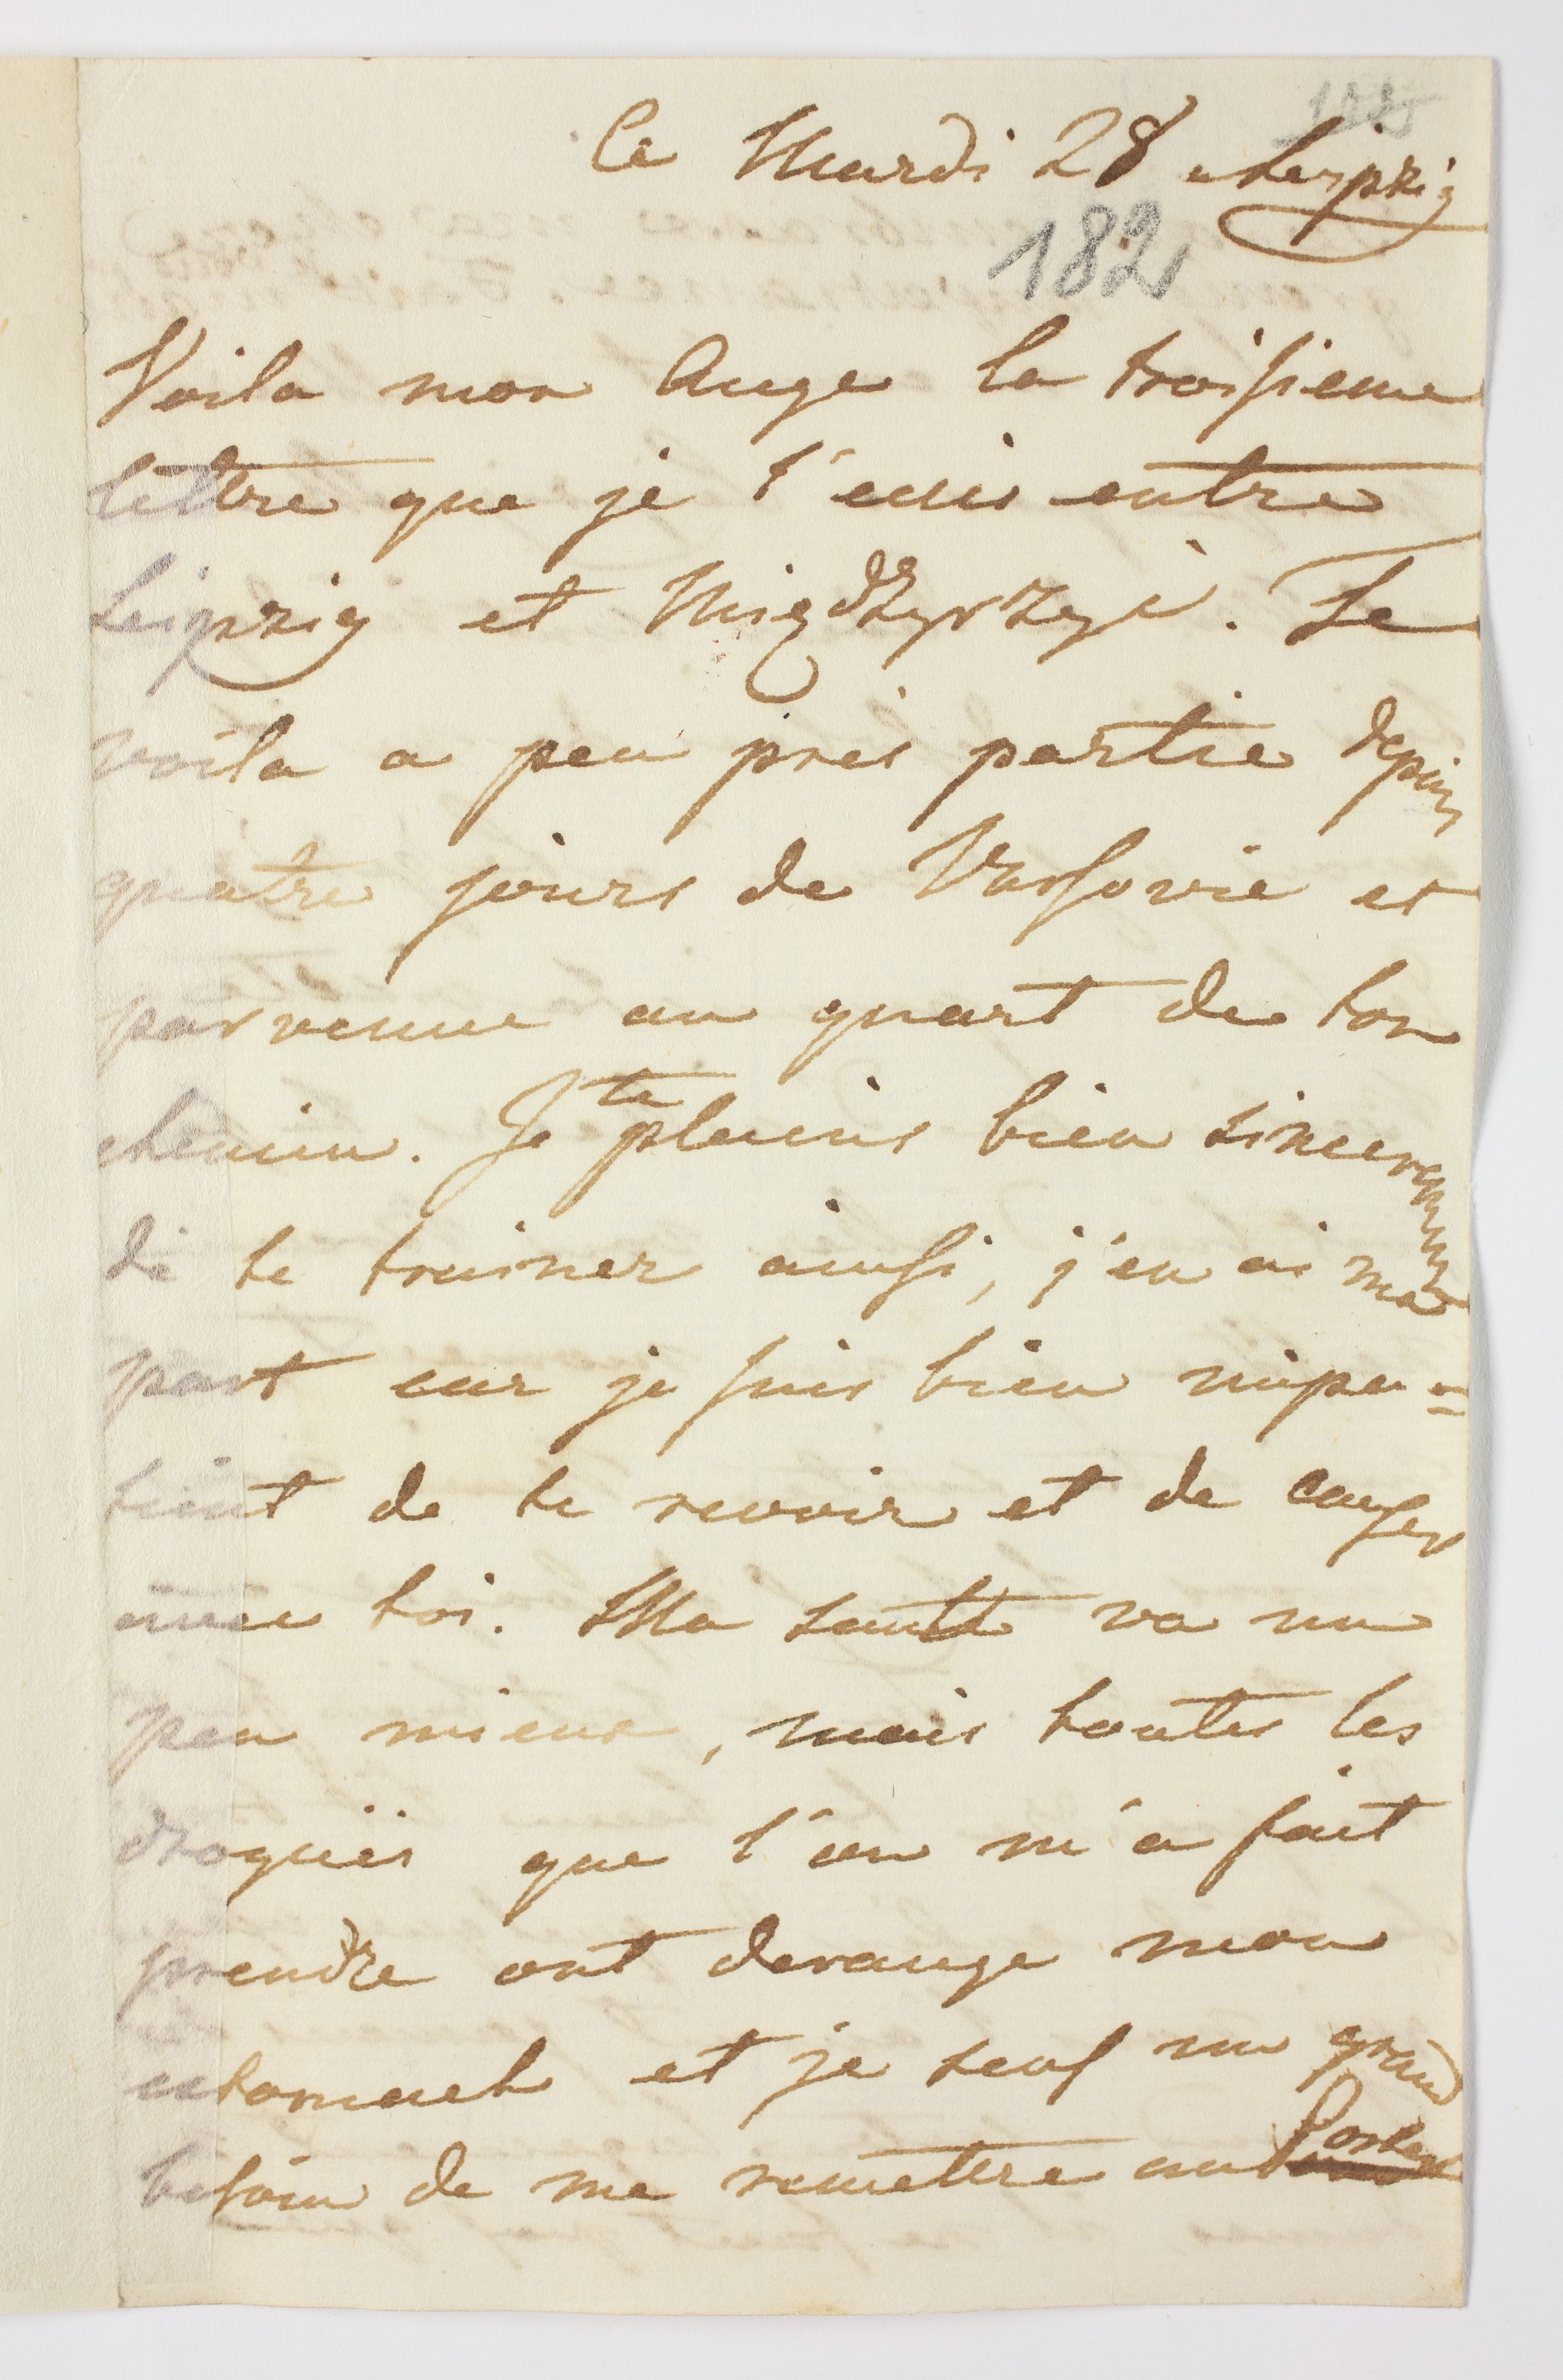 Ce Mardi 28 Leipzig
182
Voila mon Ange la troisieme
lettre que je t'ecris entre
Leipzig et Międzyrzyć. Te
voila a peu pres partie depuis
quatre jours de Varsovie et
parvenue au quart de ton
chemin. Je te plains bien sincerement
de te trainer ainsi, j'en ai ma
part car je suis bien impa=
tient de te revoir et de causer
avec toi. Ma santé va un
peu mieux, mais toutes les
drogues que l'on m'a fait
prendre ont derange mon
estomach et je sens un grand
besoin de me remettre au Porter